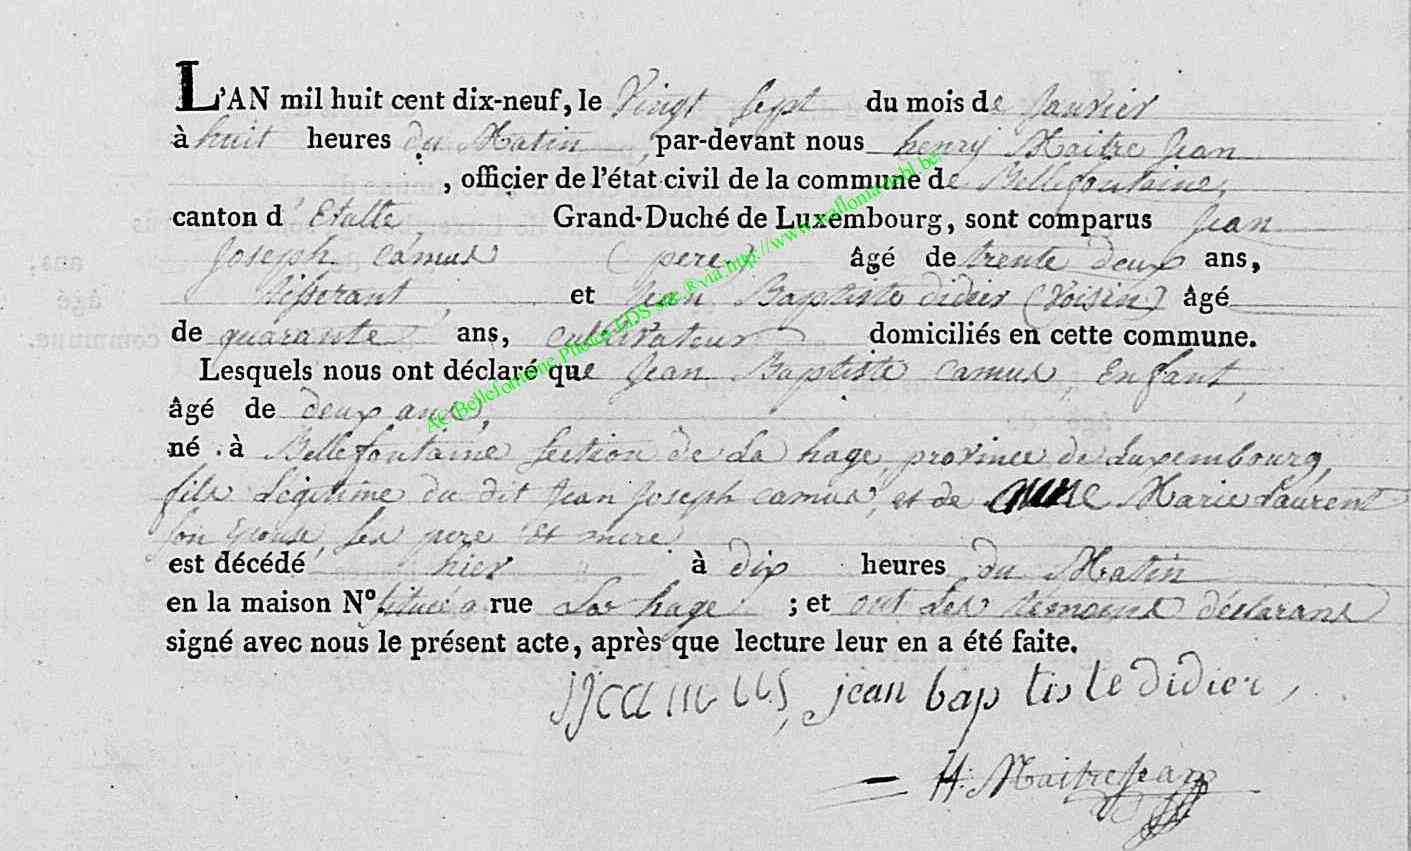 L'AN mil huit cent dix-neuf, le Vingt Sept du mois de Janvier
à huit heures du Matin, par-devant nous henry Maitre Jean
, officier de l'état civil de la commune de Bellefontaine,
canton d'Etalle Grand-Duché de Luxembourg, sont comparus Jean
Joseph Camus (pere) âgé de trente deux ans,
tisserant, et Jean Baptiste didier (Voisin) âgé
de quarante ans, cultivateur domiciliés en cette commune.
Lesquels nous ont déclaré que Jean Baptiste Camus, Enfant,
âgé de deux ans,
né à Bellefontaine Section de La hage, province de Luxembourg,
fils Légitime du dit Jean Joseph Camus, et de Anne Marie Laurent
son Epouse, ses pere et mere
est décédé hier à dix heures du Matin
en la maison N°. située a rue La hage ; et ont Les témoins déclarans
signé avec nous le présent acte, après que lecture leur en a été faite.
JJcamus, jean baptiste didier,
H. Maitrejean